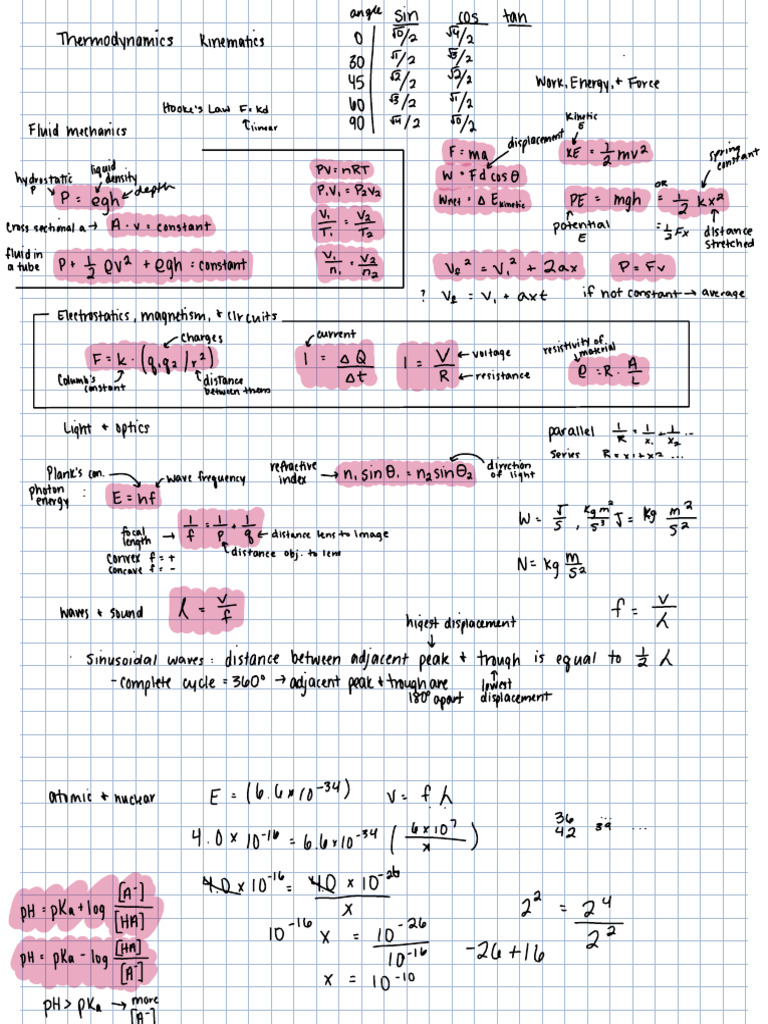 angle sin cos tan
0 √0/2 √4/2
30 √1/2 √3/2
45 √2/2 √2/2
60 √3/2 √1/2
90 √4/2 √0/2
Thermodynamics Kinematics
Work, Energy, + Force
Hooke's Law F=kd
linear
Fluid mechanics
hydrostatic P
liquid density
P = ρgh
depth
Cross sectional a → A · v = constant
fluid in a tube
P + 1/2 ρv² + ρgh = constant
PV = nRT
P₁V₁ = P₂V₂
V₁/T₁ = V₂/T₂
V₁/n₁ = V₂/n₂
F = ma
displacement
W = Fd cos θ
Wnet = Δ Ekinetic
Kinetic E
KE = 1/2 mv²
spring constant
PE = mgh OR = 1/2 kx²
potential E
= 1/2 Fx
distance stretched
V₂² = V₁² + 2ax
P = Fv
? V₂ = V₁ + axt if not constant → average
Electrostatics, magnetism, + circuits
charges
F = k · (q₁q₂/r²)
Columb's constant
distance between them
current
I = ΔQ/Δt
I = V/R
voltage
resistance
resistivity of material
ρ = R · A/L
Light + optics
parallel 1/R = 1/x₁ + 1/x₂ ...
series R = x1 + x2 ...
Plank's con.
wave frequency
photon energy : E = hf
refractive index → n₁ sin θ₁ = n₂ sin θ₂
direction of light
focal length → 1/f = 1/p + 1/q ← distance lens to image
distance obj. to lens
convex f = +
concave f = -
W = J/s , kg m²/s³ J = kg m²/s²
N = kg m/s²
waves + sound λ = v/f
f = v/λ
higest displacement
· Sinusoidal waves : distance between adjacent peak + trough is equal to 1/2 λ
- complete cycle = 360° → adjacent peak + trough are 180° apart
lowest displacement
atomic + nuclear
E = (6.6 x 10⁻³⁴) v = f λ
4.0 x 10⁻¹⁶ = 6.6 x 10⁻³⁴ (6x10⁷/x)
36
42 39 ...
4.0 x 10⁻¹⁶ = 4.0 x 10⁻²⁶/x
10⁻¹⁶ x = 10⁻²⁶/10⁻¹⁶
x = 10⁻¹⁰
2² = 2⁴/2²
-26+16
pH = pKa + log [A⁻]/[HA]
pH = pKa - log [HA]/[A⁻]
pH > pKa → more [A⁻]